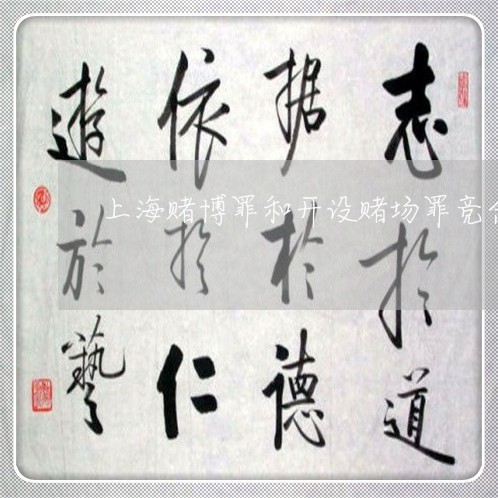 志於道
据於德
依於仁
遊於藝
上海赌博罪和开设赌场罪竞